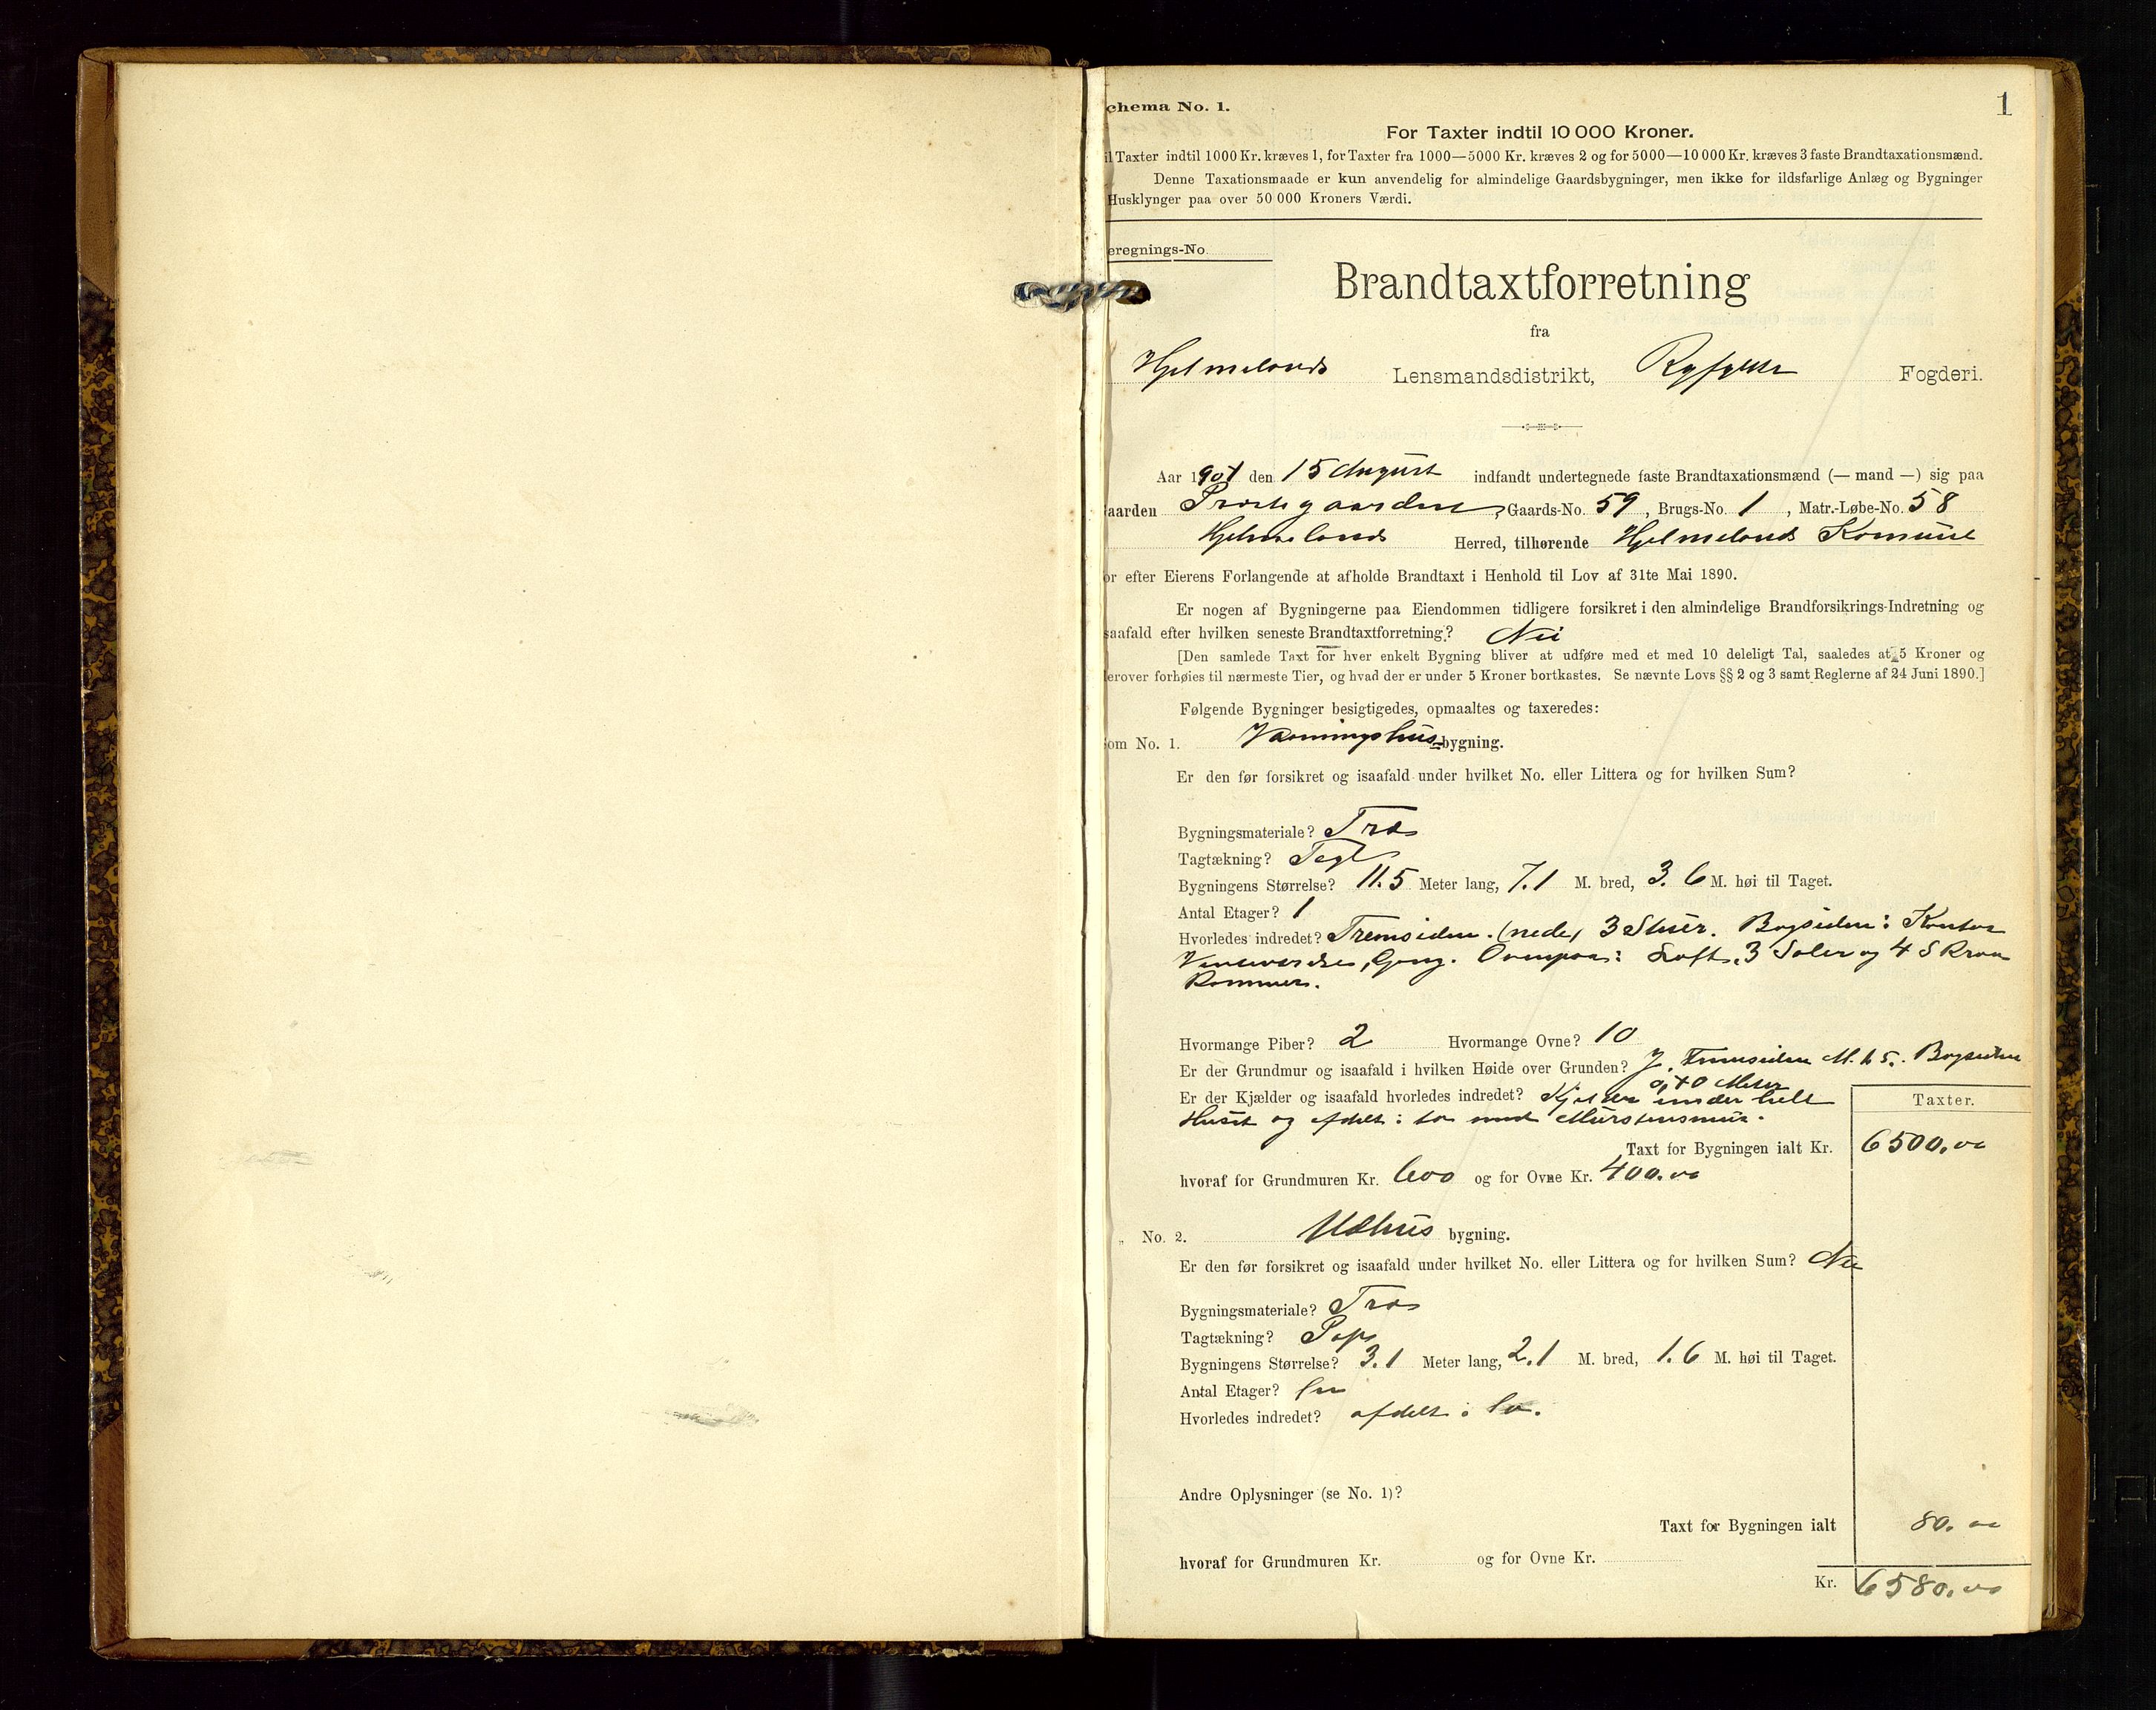 chema No. 1.
1
For Taxter indtil 10 000 Kroner.
il Taxter indtil 1000 Kr. kræves 1, for Taxter fra 1000—5000 Kr. kræves 2 og for 5000—10 000 Kr. kræves 3 faste Brandtaxationsmænd.
Denne Taxationsmaade er kun anvendelig for almindelige Gaardsbygninger, men ikke for ildsfarlige Anlæg og Bygninger
Husklynger paa over 50 000 Kroners Værdi.
eregnings-No.
Brandtaxtforretning
fra
Hjelmelands Lensmandsdistrikt, Ryfylke Fogderi.
Aar 1901 den 15 August indfandt undertegnede faste Brandtaxationsmænd (— mand —) sig paa
aarden Præstegaarden, Gaards-No. 59, Brugs-No. 1, Matr.-Løbe-No. 58
Hjelmelands Herred, tilhørende Hjelmelands Komune
or efter Eierens Forlangende at afholde Brandtaxt i Henhold til Lov af 31te Mai 1890.
Er nogen af Bygningerne paa Eiendommen tidligere forsikret i den almindelige Brandforsikrings-Indretning og
saafald efter hvilken seneste Brandtaxtforretning? Nei
[Den samlede Taxt for hver enkelt Bygning bliver at udføre med et med 10 deleligt Tal, saaledes at 5 Kroner og
erover forhøies til nærmeste Tier, og hvad der er under 5 Kroner bortkastes. Se nævnte Lovs §§ 2 og 3 samt Reglerne af 24 Juni 1890.]
Følgende Bygninger besigtigedes, opmaaltes og taxeredes:
om No. 1. Vaaningshus bygning.
Er den før forsikret og isaafald under hvilket No. eller Littera og for hvilken Sum?
Bygningsmateriale? Træ
Tagtækning? Tegl
Bygningens Størrelse? 11.5 Meter lang, 7.1 M. bred, 3.6 M. høi til Taget.
Antal Etager? 1
Hvorledes indredet? Fremsiden (nede) 3 Stuer. Bagsiden: Kontor
Gang. Ovenpaa: Loft, 3 Saler og 4 Skraa
Rommer.
Hvormange Piber? 2 Hvormange Ovne? 10
Er der Grundmur og isaafald i hvilken Høide over Grunden? J. Fremsiden M. 1.5. Bagsiden
0,40 Meter
Er der Kjælder og isaafald hvorledes indredet? Kjelder under hele
Huset og afdelt i to med Murstensmur.
Taxter.
Taxt for Bygningen ialt Kr. 6500.00
hvoraf for Grundmuren Kr. 600 og for Ovne Kr. 400.00
„ No. 2. Udhus bygning.
Er den før forsikret og isaafald under hvilket No. eller Littera og for hvilken Sum? Nei
Bygningsmateriale? Træ
Tagtækning? Pap
Bygningens Størrelse? 3.1 Meter lang, 2.1 M. bred, 1.6 M. høi til Taget.
Antal Etager? En
Hvorledes indredet? afdelt i to.
Andre Oplysninger (se No. 1)?
Taxt for Bygningen ialt 80.00
hvoraf for Grundmuren Kr. og for Ovne Kr.
Kr. 6580.00